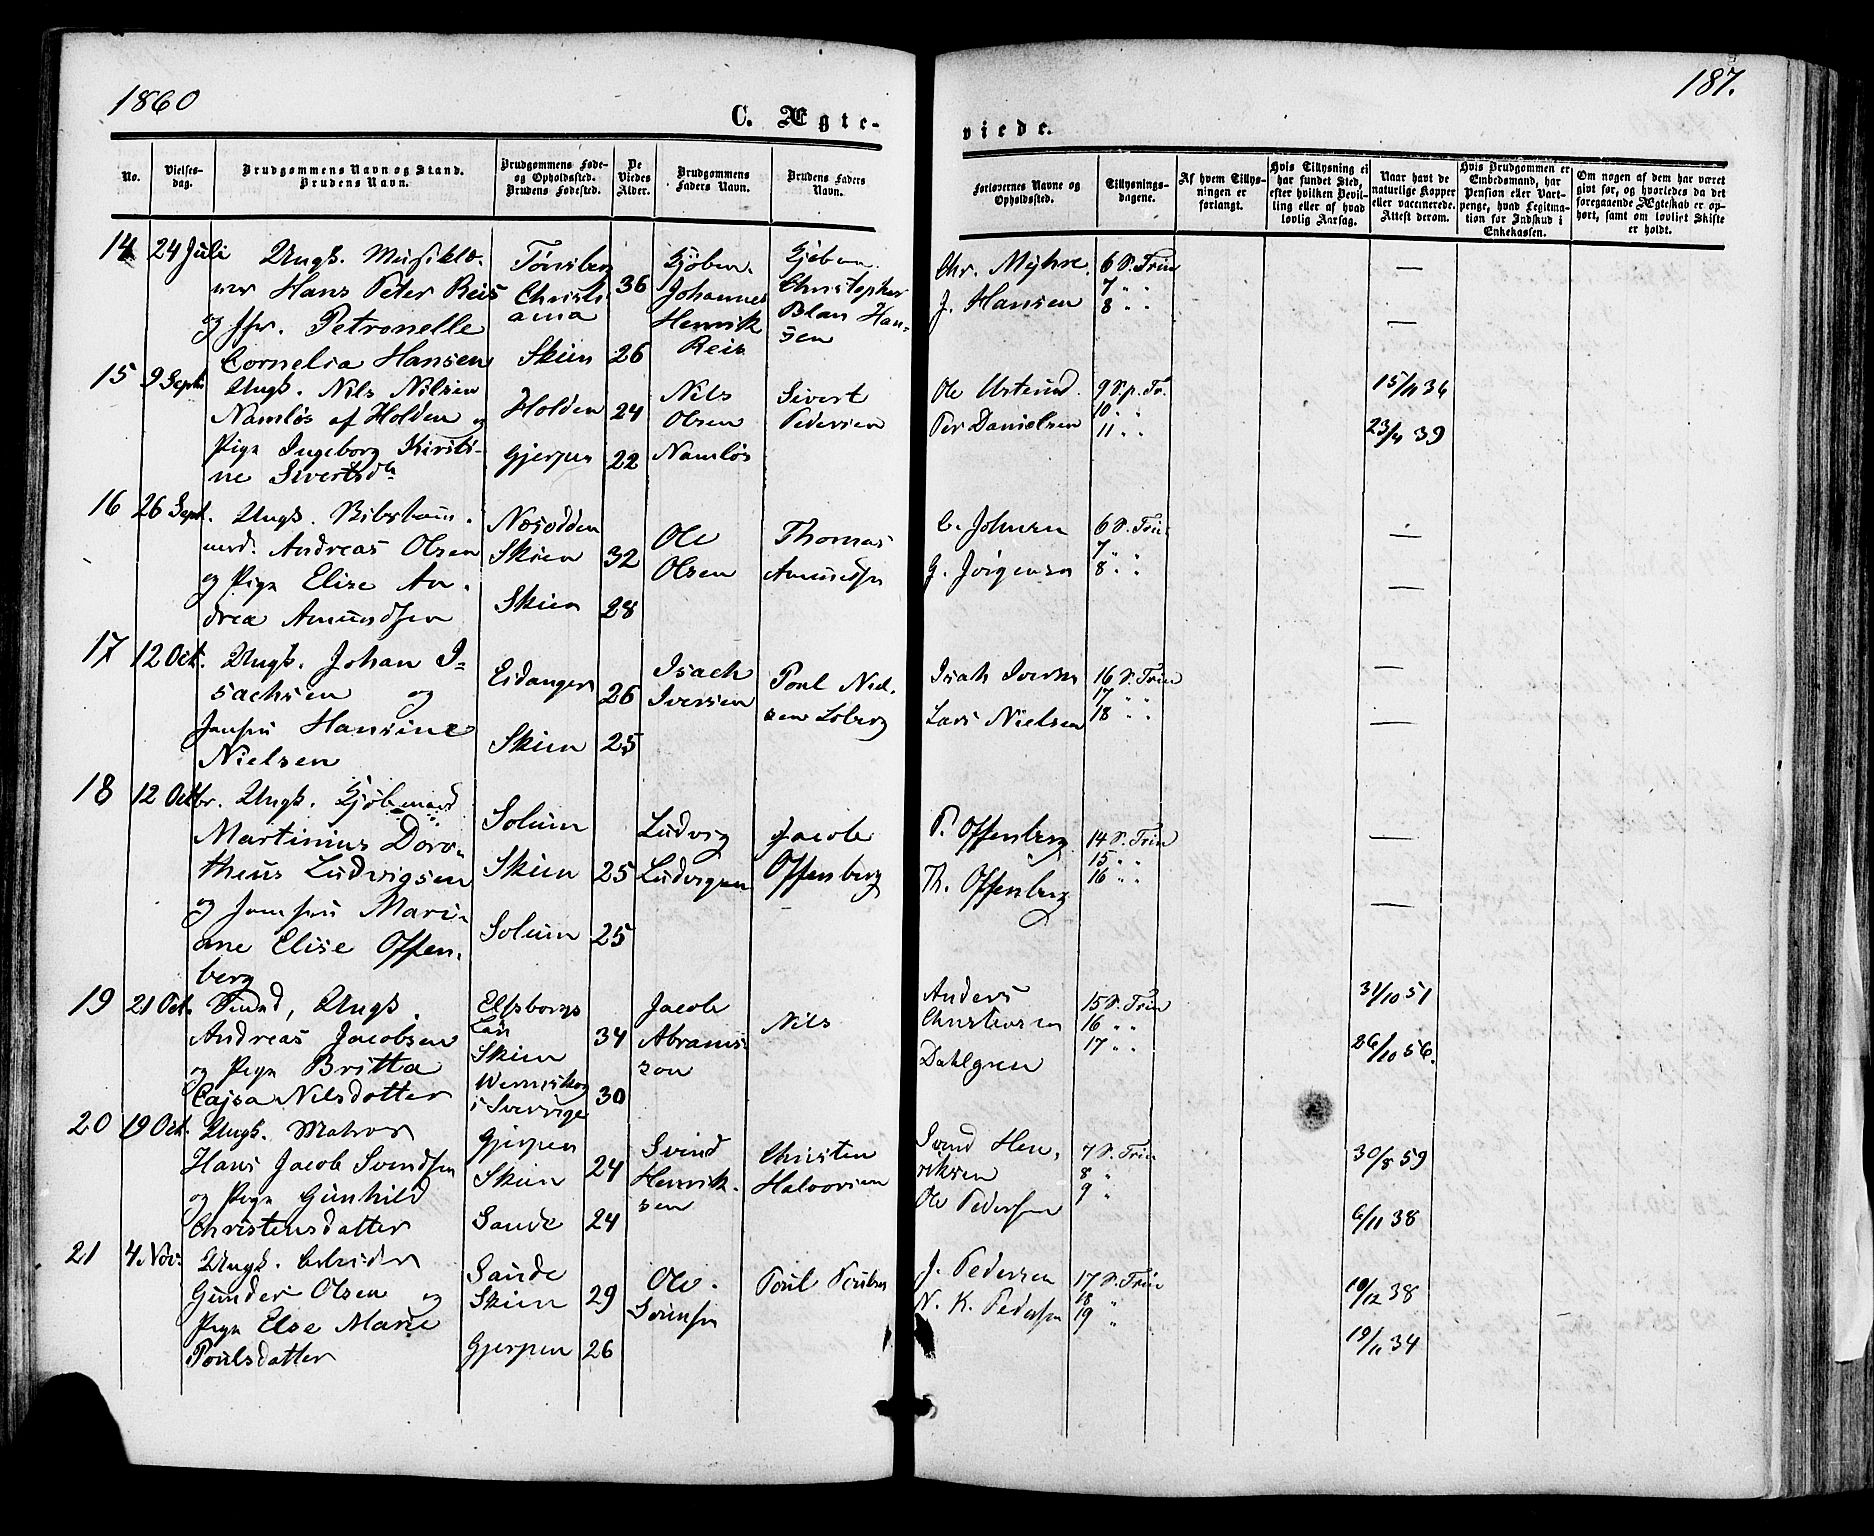 1860
187.
C. Ægte-
viede.
No.
Vielses-
dag.
Brudgommens Navn og Stand.
Brudens Navn.
Brudgommens Føde-
og Opholdssted.
Brudens Fødested.
De
Viedes
Alder.
Brudgommens
Faders Navn.
Brudens Faders
Navn.
Forlovernes Navne og
Opholdssted.
Tillysnings-
dagene.
Af hvem Tillys-
ningen er
forlangt.
Hvis Tillysning ei
har fundet Sted,
efter hvilken Bevil-
ling eller af hvad
lovlig Aarsag.
Naar havt de
naturlige Kopper
eller vaccinerede.
Attest derom.
Hvis Brudgommen er
Embedsmand, har
Pension eller Vart-
penge, hvad Legitima-
tion for Indskud i
Enkekassen.
Om nogen af dem har været
givt før, og hvorledes da det
foregaaende Ægteskab er op-
hørt, samt om lovligt Skifte
er holdt.
14 24 Juli Ungk. Musiklæ-
rer Hans Peter Reis
og Jfr. Petronelle
Cornelia Hansen
Tønsberg
Christi
ania
Skien
36
26
Kjøbm.
Johannes
Henrik
Reis
Kjøbm.
Christopher
Blau Han-
sen
Chr. Myhre
J. Hansen
6 S. Trin
7 " "
8 " "
—
—
15 9 Septr Ungk. Nils Nilsen
Namløs af Holden og
Pige Ingeborg Kirsti-
ne Sivertsdtr
Holden
Gjerpen
24
22
Nils
Olsen
Namløs
Sivert
Pedersen
Ole
Per Danielsen
9 S. p. Tr.
10 " "
11 " "
15/11 36
23/9 39
16 26 Sept. Ungk.
Andreas Olsen
og Pige Elise An-
drea Amundsen
Næsodden
Skien
Skien
32
28
Ole
Olsen
Thomas
Amundsen
C. Johnsen
G. Jørgensen
6 S. Trin
7 " "
8 " "
—
—
17 12 Oct. Ungk. Johan I-
sachsen og
Jomfru Hansine
Nielsen
Eidanger
Skien
26
25
Isach
Iversen
Poul Niel-
sen Loberg
Isak Iversen
Lars Nielsen
16 S. Trin
17 " "
18 " "
—
—
18 12 Octbr. Ungk. Kjøbmand
Martinius Doro-
theus Ludvigsen
og Jomfru Mari-
ane Elise Offen-
berg
Solum
Skien
Solum
25
25
Ludvig
Ludvigsen
Jacob
Offenberg
P. Offenberg
Th. Offenberg
14 S. Trin
15 " "
16 " "
—
—
19 21 Oct. Ungk.
Andreas Jacobsen
og Pige Britta
Cajsa Nilsdotter
Elfsborgs
Län
Skien
i Sverrige
34
30
Jacob
Abrams-
son
Nils
Anders
Christensen
Dahlgren
15 S. Trin
16 " "
17 " "
31/10 51
26/10 56.
20 19 Oct. Ungk. Matros
Hans Jacob Svendsen
og Pige Gunhild
Christensdatter
Gjerpen
Skien
Sande
24
24
Svend
Henrik-
sen
Christen
Halvorsen
Svend Hen-
riksen
Ole Pedersen
7 S. Trin
8 "
9 "
30/8 59
6/11 38
21 4. Nov. Ungk. Arbeider
Gunder Olsen og
Pige Else Marie
Poulsdatter
Saude
Skien
Gjerpen
29
26
Ole
Sørensen
Poul Poulsen
J. Pedersen
N. K. Pedersen
17 S. Trin
18
19 "
10/12 38
19/11 34